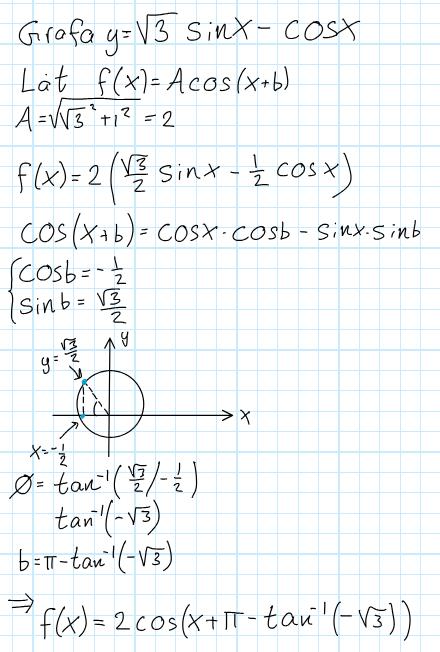 Grafa y=√3 sinx - cosx
Låt f(x)=Acos(x+b)
A=√(√3²+1²) = 2
f(x)=2(√3/2 sinx - 1/2 cosx)
cos(x+b)=cosx·cosb-sinx·sinb
{cosb=-1/2
sinb=√3/2
y=√3/2
y
x
x=-1/2
Ø=tan⁻¹(√3/2/-1/2)
tan⁻¹(-√3)
b=π-tan⁻¹(-√3)
⇒ f(x)=2cos(x+π-tan⁻¹(-√3))